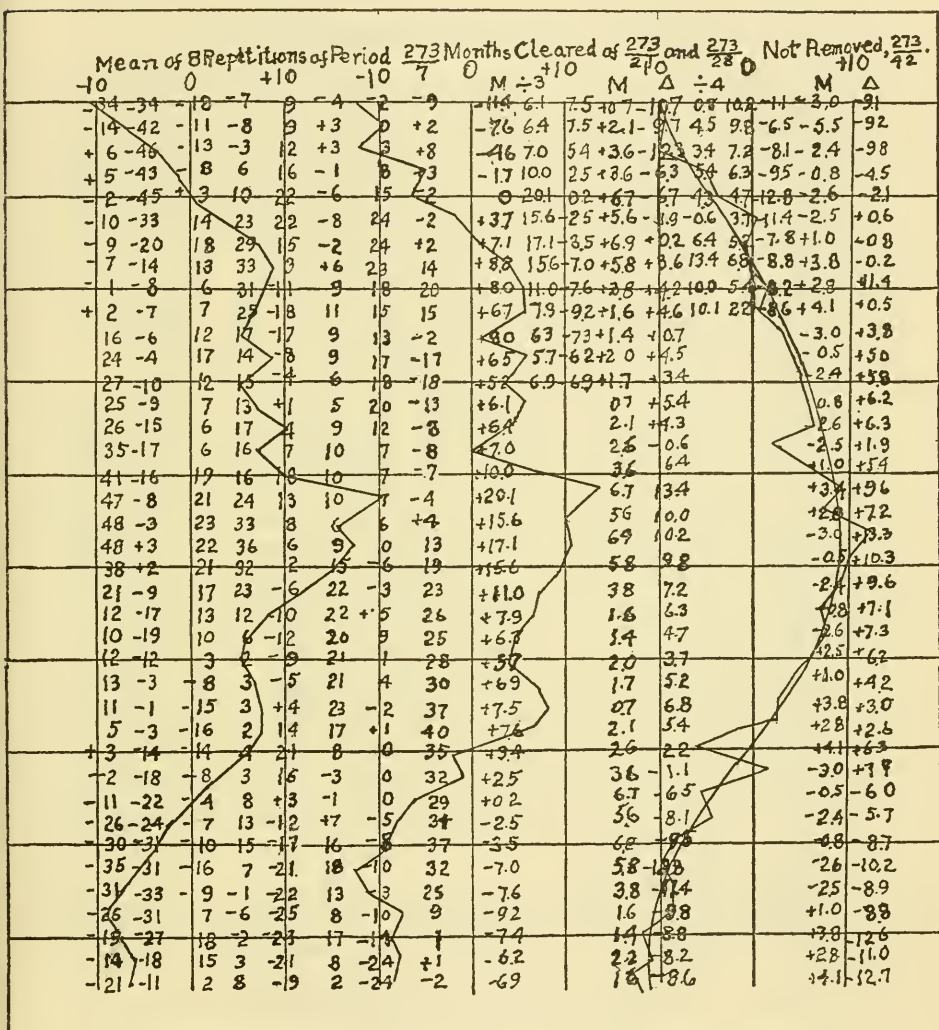 Mean of 8 Repttitions of Period 273/7 Months Cleared of 273/210 and 273/28. Not Removed, 273/42.
-10 0 +10 -10 0 +10 0 +10
M ÷3 M Δ ÷4 M Δ
-34 -34 -18 -7 9 -4 -2 -9 -11.4 6.1 7.5 +0.7 -10.7 0.8 10.2 -1.1 -3.0 -9.1
-14 -42 -11 -8 9 +3 0 +2 -7.6 6.4 7.5 +2.1 -9.7 4.5 9.8 -6.5 -5.5 -92
+6 -46 -13 -3 12 +3 3 +8 -46 7.0 54 +3.6 -12.3 34 7.2 -8.1 -2.4 -98
+5 -43 -8 6 16 -1 8 +3 -1.7 10.0 25 +3.6 -6.3 5.4 6.3 -95 -0.8 -4.5
-2 -45 +3 10 22 -6 15 -2 0 20.1 0.2 +6.7 -6.7 43 4.7 -12.8 -2.6 -2.1
-10 -33 14 23 22 -8 24 -2 +37 15.6 -25 +5.6 -1.9 -0.6 3.7 -11.4 -2.5 +0.6
-9 -20 18 29 15 -2 24 +2 +7.1 17.1 -3.5 +6.9 +0.2 6.4 52 -7.8 +1.0 -0.8
-7 -14 13 33 3 +6 23 14 +8.8 15.6 -7.0 +5.8 +3.6 13.4 68 -8.8 +3.8 -0.2
-1 -8 6 31 -11 9 18 20 +8.0 11.0 -7.6 +3.8 +4.2 10.0 5.4 -8.2 +2.8 +1.4
+2 -7 7 25 -18 11 15 15 +67 7.9 -92 +1.6 +4.6 10.1 22 -8.6 +4.1 +0.5
16 -6 12 17 -17 9 13 -2 +8.0 63 -73 +1.4 +0.7 -3.0 +3.8
24 -4 17 14 -8 9 17 -17 +65 5.7 -62 +2.0 +4.5 -0.5 +50
27 -10 12 15 -4 6 18 -18 +5.2 6.9 -69 +1.7 +3.4 -2.4 +5.8
25 -9 7 13 +1 5 20 -13 +6.1 07 +5.4 0.8 +6.2
26 -15 6 17 4 9 12 -8 +6.4 2.1 +4.3 -2.6 +6.3
35 -17 6 16 7 10 7 -8 +7.0 26 -0.6 -2.5 +1.9
41 -16 19 16 18 10 7 -7 +10.0 36 6.4 +1.0 +54
47 -8 21 24 13 10 7 -4 +20.1 6.7 13.4 +3.4 +96
48 -3 23 33 8 6 6 +4 +15.6 56 10.0 +2.8 +72
48 +3 22 36 6 9 0 13 +17.1 69 10.2 -3.0 +3.3
38 +2 21 92 2 15 -6 19 +15.6 5.8 9.8 -0.5 +10.3
21 -9 17 23 -6 22 -3 23 +11.0 38 7.2 -2.4 +9.6
12 -17 13 12 -10 22 +5 26 +7.9 1.6 6.3 -28 +7.1
10 -19 10 6 -12 20 9 25 +6.3 1.4 4.7 -2.6 +7.3
12 -12 3 2 -9 21 1 28 +5.7 2.0 3.7 +2.5 +6.2
13 -3 -8 3 -5 21 4 30 +69 1.7 5.2 +1.0 +4.2
11 -1 -15 3 +4 23 -2 37 +7.5 0.7 6.8 +3.8 +3.0
5 -3 -16 2 14 17 +1 40 +7.6 2.1 5.4 +28 +2.6
+3 -14 -14 4 21 8 0 35 +9.4 26 22 +4.1 +6.3
-2 -18 -8 3 16 -3 0 32 +2.5 36 -1.1 -3.0
-11 -22 -4 8 +3 -1 0 29 +0.2 6.7 -6.5 -0.5 -6.0
-26 -24 -7 13 -12 +7 -5 34 -2.5 56 -8.1 -2.4 -5.7
-30 -31 -10 15 -17 16 -8 37 -3.5 -0.8 -8.7
-35 -31 -16 7 -21 18 -10 32 -7.0 5.8 -26 -10.2
-31 -33 -9 -1 -22 13 -3 25 -7.6 3.8 -25 -8.9
-26 -31 7 -6 -25 8 -10 9 -92 1.6 -9.8 +1.0 -8.8
-19 -27 18 -2 -23 17 -14 1 -7.4 1.4 -8.8 +3.8 -126
-14 -18 15 3 -21 8 -24 +1 -6.2 2.2 -8.2 +28 -11.0
-21 -11 2 8 -19 2 -24 -2 -69 1.6 -8.6 +4.1 -12.7